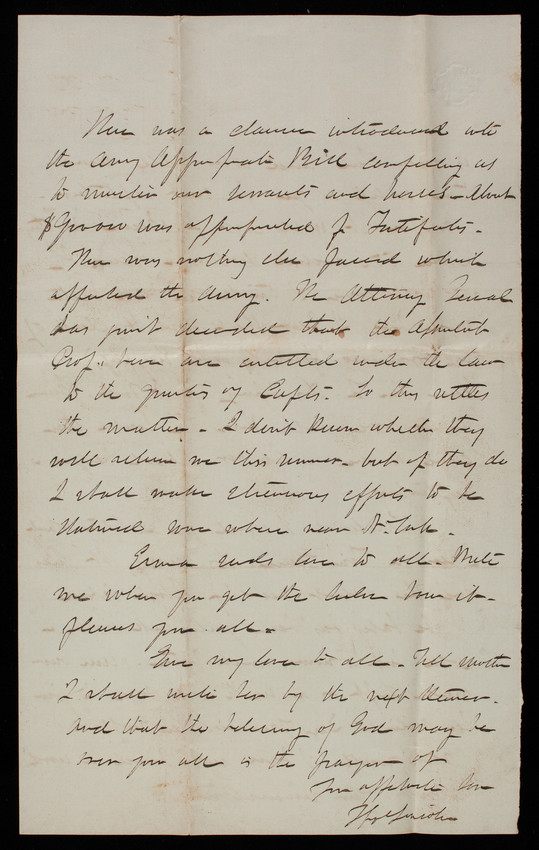 There was a clause introduced into
the Army Appropriation Bill compelling us
to muster our servants and horses - About
was appropriated for Fortifications -
There was nothing else passed which
affected the Army. The Attorney General
has just decided that the Assistant
Prof.s here are entitled under the law
to the quarters of Capts. So this settles
the matter - I don't know whether they
will relieve me this summer - but if they do
I shall make strenuous efforts to be
stationed some where near N. York.
Emma sends love to all. Write
me when you get the
pleases you all.
Give my love to all. Tell Mother
I shall write her by the next Steamer.
And that the blessing of God may be
over you all is the prayer of
Your affectionate Son
Thos